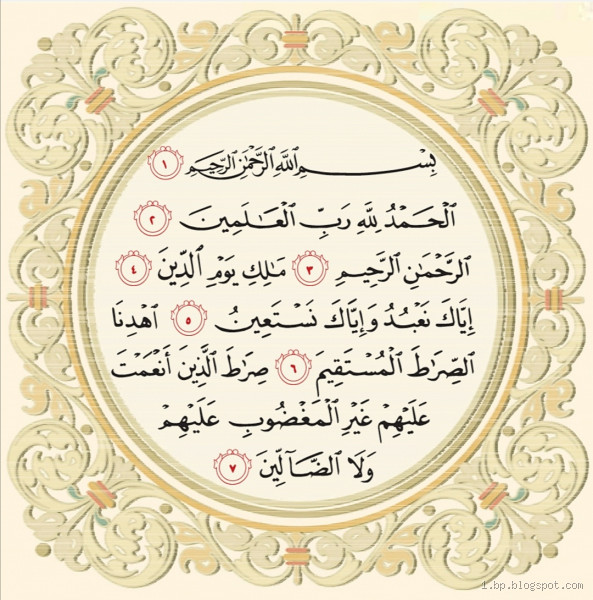 بِسْمِ ٱللَّهِ ٱلرَّحْمَٰنِ ٱلرَّحِيمِ ١
ٱلْحَمْدُ لِلَّهِ رَبِّ ٱلْعَٰلَمِينَ ٢
ٱلرَّحْمَٰنِ ٱلرَّحِيمِ ٣ مَٰلِكِ يَوْمِ ٱلدِّينِ ٤
إِيَّاكَ نَعْبُدُ وَإِيَّاكَ نَسْتَعِينُ ٥ ٱهْدِنَا
ٱلصِّرَٰطَ ٱلْمُسْتَقِيمَ ٦ صِرَٰطَ ٱلَّذِينَ أَنْعَمْتَ
عَلَيْهِمْ غَيْرِ ٱلْمَغْضُوبِ عَلَيْهِمْ
وَلَا ٱلضَّآلِّينَ ٧
1.bp.blogspot.com